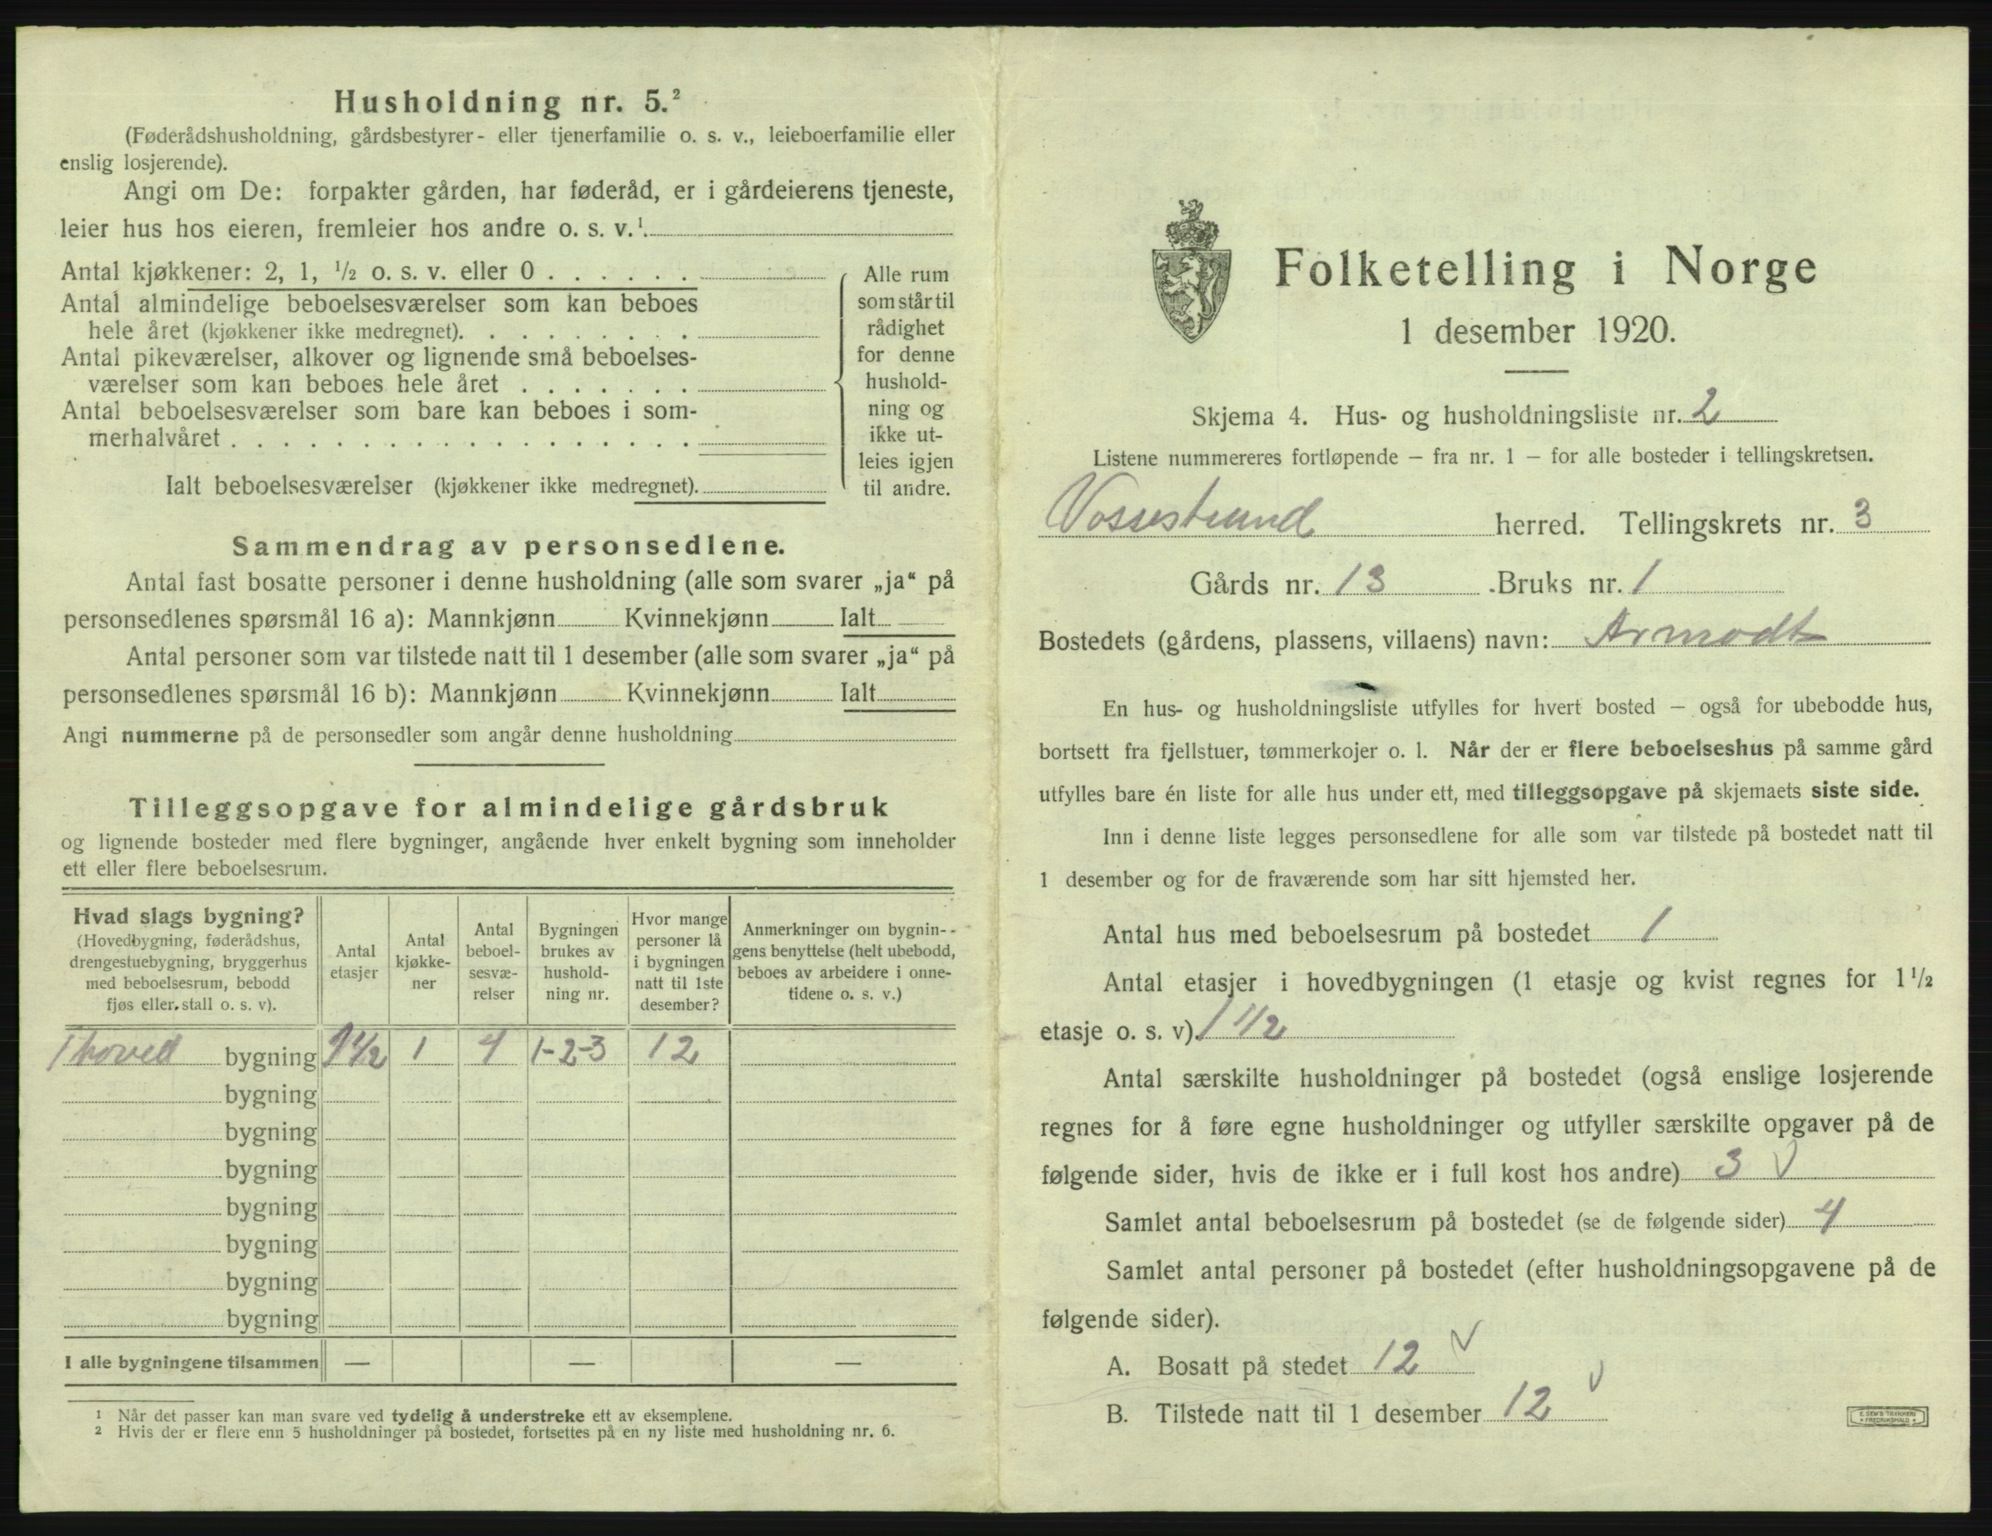 Husholdning nr. 5.²
(Føderådshusholdning, gårdsbestyrer- eller tjenerfamilie o. s. v., leieboerfamilie eller
enslig losjerende).
Angi om De: forpakter gården, har føderåd, er i gårdeierens tjeneste,
leier hus hos eieren, fremleier hos andre o. s. v.¹
Antal kjøkkener: 2, 1, ½ o. s. v. eller 0 . . . . . .
Antal almindelige beboelsesværelser som kan beboes
hele året (kjøkkener ikke medregnet). . . . . . . .
Antal pikeværelser, alkover og lignende små beboelses-
værelser som kan beboes hele året . . . . . . .
Antal beboelsesværelser som bare kan beboes i som-
merhalvåret . . . . . . . . . . . . . . . . . .
Ialt beboelsesværelser (kjøkkener ikke medregnet).
Alle rum
som står til
rådighet
for denne
hushold-
ning og
ikke ut-
leies igjen
til andre.
Sammendrag av personsedlene.
Antal fast bosatte personer i denne husholdning (alle som svarer „ja“ på
personsedlenes spørsmål 16 a): Mannkjønn Kvinnekjønn Ialt
Antal personer som var tilstede natt til 1 desember (alle som svarer „ja“ på
personsedlenes spørsmål 16 b): Mannkjønn Kvinnekjønn Ialt
Angi nummerne på de personsedler som angår denne husholdning
Tilleggsopgave for almindelige gårdsbruk
og lignende bosteder med flere bygninger, angående hver enkelt bygning som inneholder
ett eller flere beboelsesrum.
Hvad slags bygning?
(Hovedbygning, føderådshus,
drengestuebygning, bryggerhus
med beboelsesrum, bebodd
fjøs eller stall o. s. v).
Antal
etasjer
Antal
kjøkke-
ner
Antal
beboel-
sesvæ-
relser
Bygningen
brukes av
hushold-
ning nr.
Hvor mange
personer lå
i bygningen
natt til 1ste
desember?
Anmerkninger om bygnin-
gens benyttelse (helt ubebodd,
beboes av arbeidere i onne-
tidene o. s. v.)
1 hoved bygning 1 1/2 1 4 1-2-3 12
bygning
bygning
bygning
bygning
bygning
bygning
bygning
I alle bygningene tilsammen — — —
¹ Når det passer kan man svare ved tydelig å understreke ett av eksemplene.
² Hvis der er flere enn 5 husholdninger på bostedet, fortsettes på en ny liste med husholdning nr. 6.
Folketelling i Norge
1 desember 1920.
Skjema 4. Hus- og husholdningsliste nr. 2
Listene nummereres fortløpende – fra nr. 1 – for alle bosteder i tellingskretsen.
Vossestrand herred. Tellingskrets nr. 3
Gårds nr. 13 Bruks nr. 1
Bostedets (gårdens, plassens, villaens) navn: Armodt
En hus- og husholdningsliste utfylles for hvert bosted – også for ubebodde hus,
bortsett fra fjellstuer, tømmerkojer o. l. Når der er flere beboelseshus på samme gård
utfylles bare én liste for alle hus under ett, med tilleggsopgave på skjemaets siste side.
Inn i denne liste legges personsedlene for alle som var tilstede på bostedet natt til
1 desember og for de fraværende som har sitt hjemsted her.
Antal hus med beboelsesrum på bostedet 1
Antal etasjer i hovedbygningen (1 etasje og kvist regnes for 1½
etasje o. s. v). 1 1/2
Antal særskilte husholdninger på bostedet (også enslige losjerende
regnes for å føre egne husholdninger og utfyller særskilte opgaver på de
følgende sider, hvis de ikke er i full kost hos andre) 3 √
Samlet antal beboelsesrum på bostedet (se de følgende sider) 4
Samlet antal personer på bostedet (efter husholdningsopgavene på de
følgende sider).
A. Bosatt på stedet 12 √
B. Tilstede natt til 1 desember 12 √
E. SEM'S TRYKKERI
FREDRIKSHALD